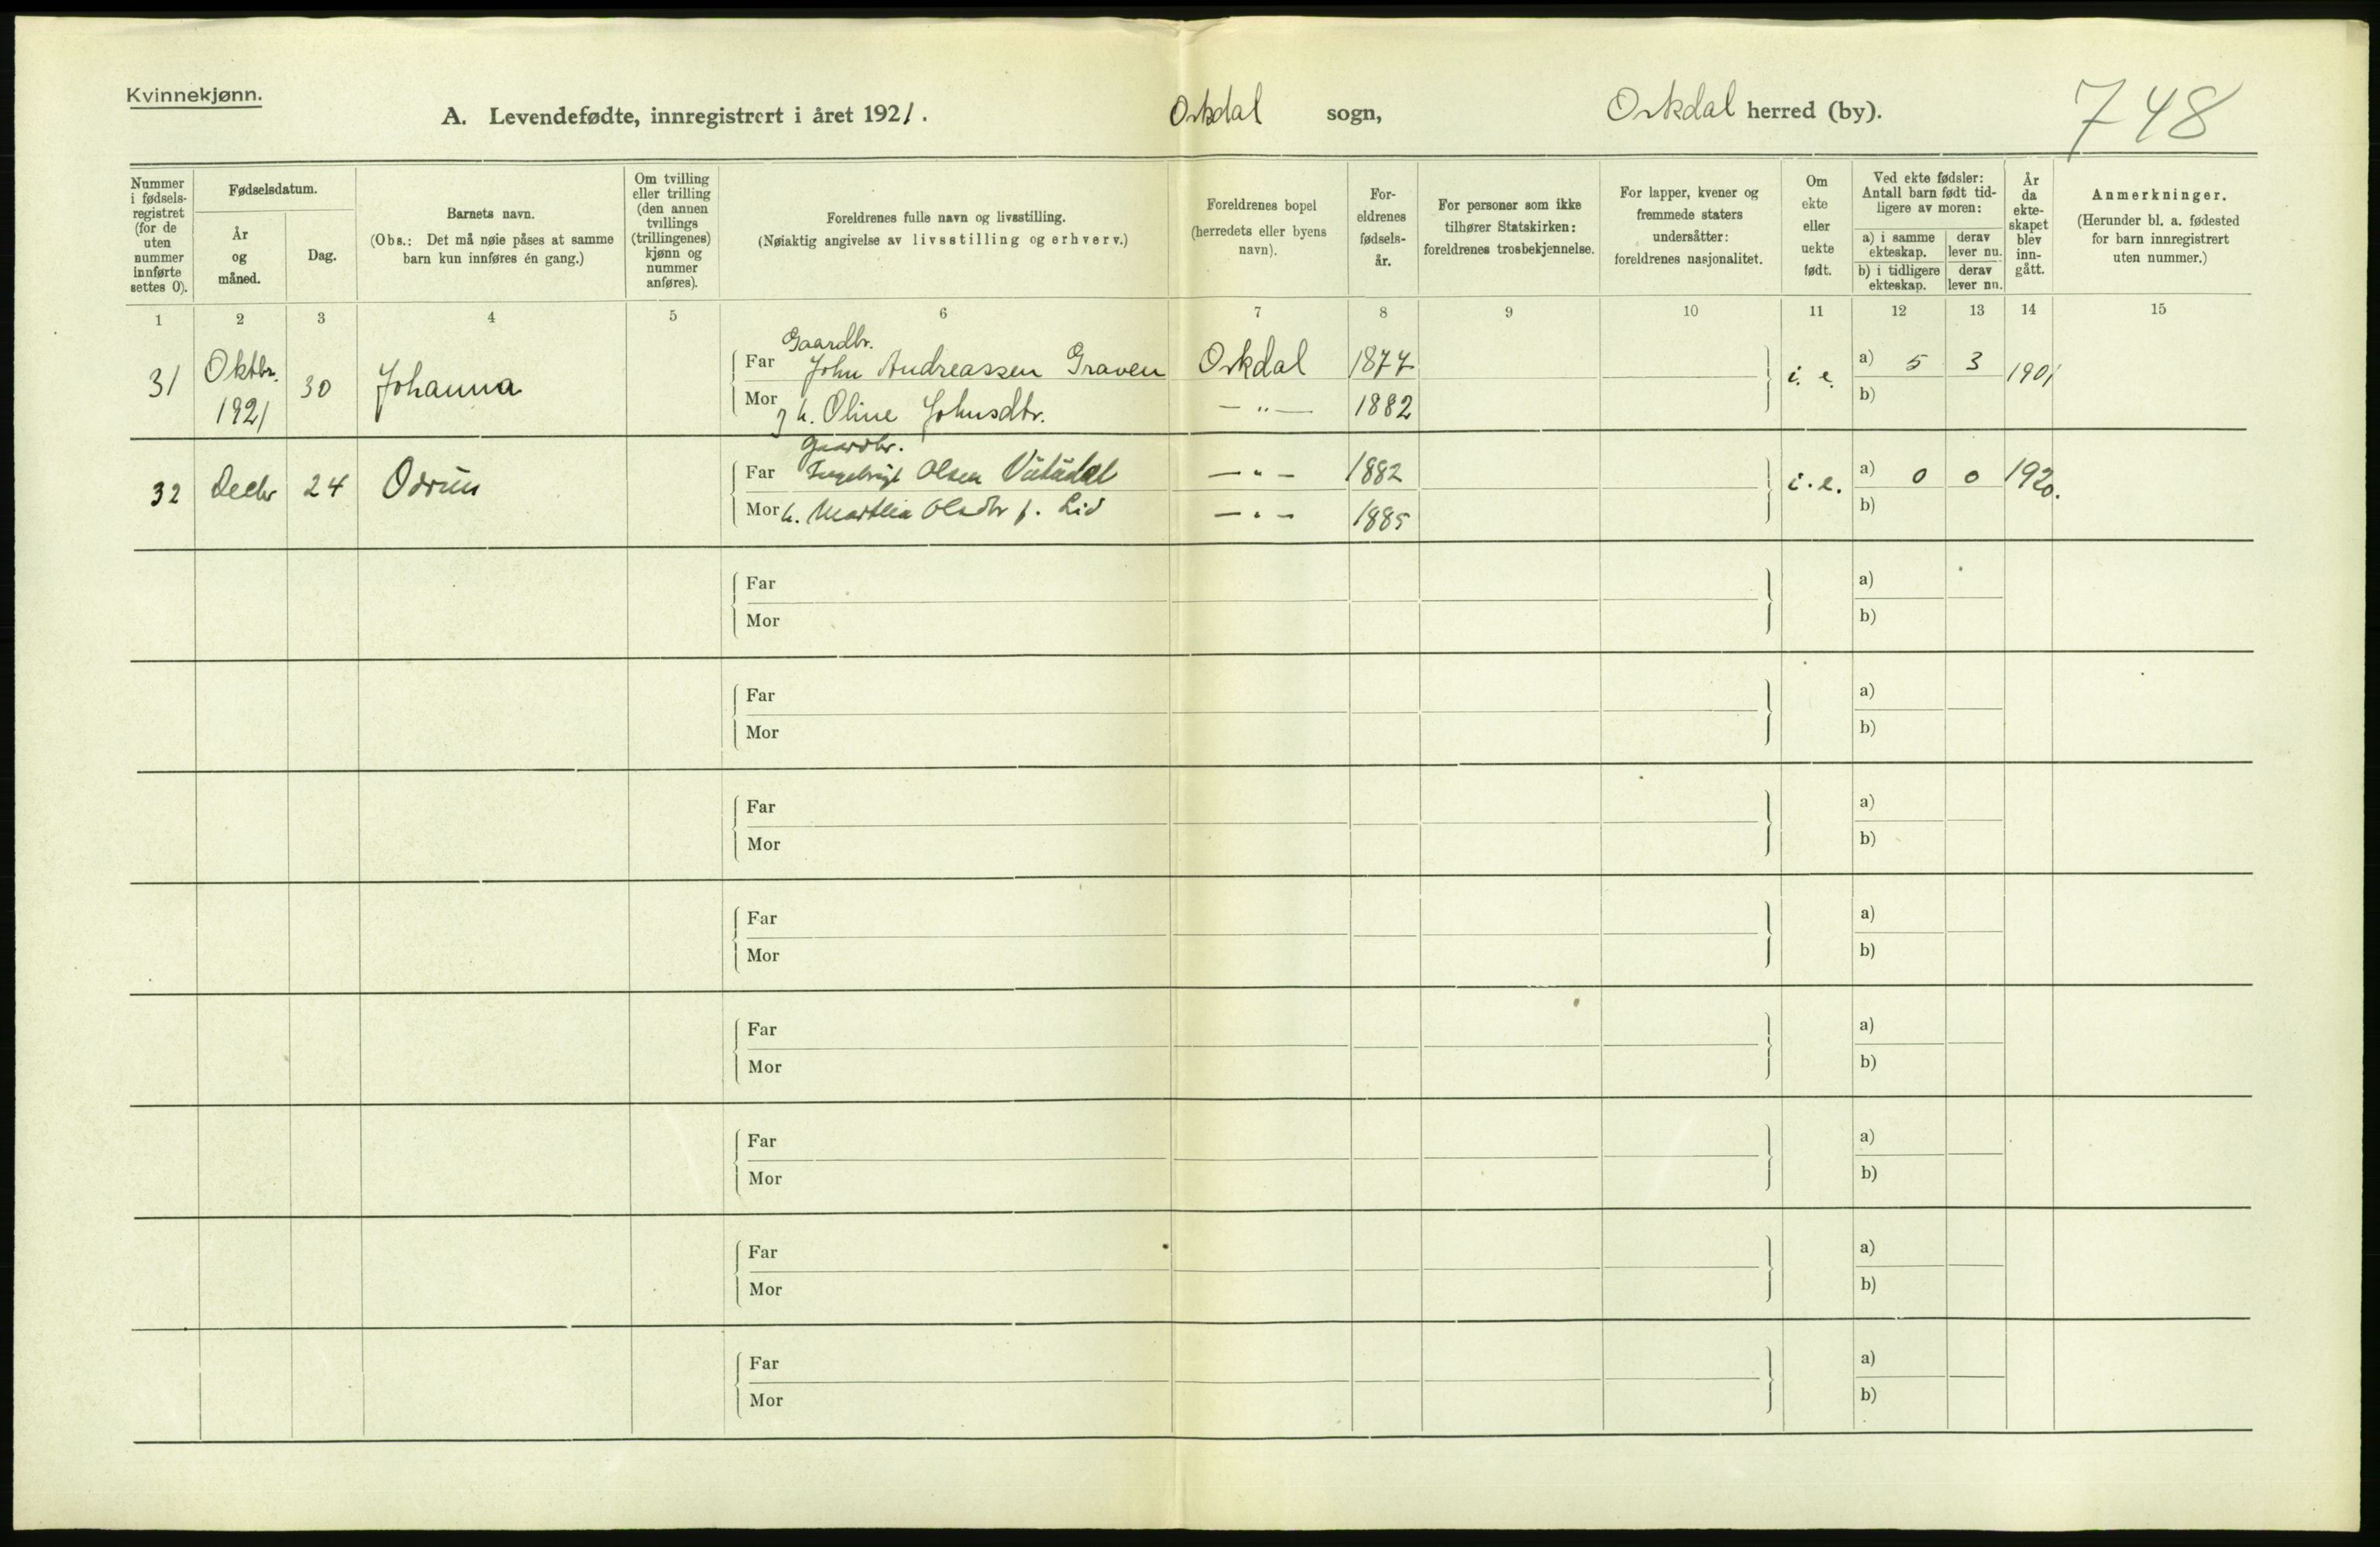 Kvinnekjønn.
A. Levendefødte, innregistrert i året 1921.
Orkdal sogn,
Orkdal herred (by).
748
Nummer i fødselsregistret (for de uten nummer innførte settes 0).
Fødselsdatum.
År og måned.
Dag.
Barnets navn.
(Obs.: Det må nøie påses at samme barn kun innføres én gang.)
Om tvilling eller trilling (den annen tvillings (trillingenes) kjønn og nummer anføres).
Foreldrenes fulle navn og livsstilling.
(Nøiaktig angivelse av livsstilling og erhverv.)
Foreldrenes bopel (herredets eller byens navn).
Foreldrenes fødselsår.
For personer som ikke tilhører Statskirken: foreldrenes trosbekjennelse.
For lapper, kvener og fremmede staters undersåtter: foreldrenes nasjonalitet.
Om ekte eller uekte født.
Ved ekte fødsler: Antall barn født tidligere av moren:
a) i samme ekteskap.
derav lever nu.
b) i tidligere ekteskap.
derav lever nu.
År da ekteskapet blev inngått.
Anmerkninger.
(Herunder bl. a. fødested for barn innregistrert uten nummer.)
1 2 3 4 5 6 7 8 9 10 11 12 13 14 15
Gaardbr.
31 Oktbr. 1921 30 Johanna Far John Andreassen Graven Orkdal 1877 i. e. a) 5 3 1901
Mor g h. Oline Johnsdtr. — " — 1882 b)
Gaardbr.
32 Decbr 24 Odrun Far Ingebrigt Olsen — " — 1882 i. e. a) 0 0 1920.
Mor h. Olsdtr f. Lid — " — 1885 b)
Far a)
Mor b)
Far a)
Mor b)
Far a)
Mor b)
Far a)
Mor b)
Far a)
Mor b)
Far a)
Mor b)
Far a)
Mor b)
Far a)
Mor b)